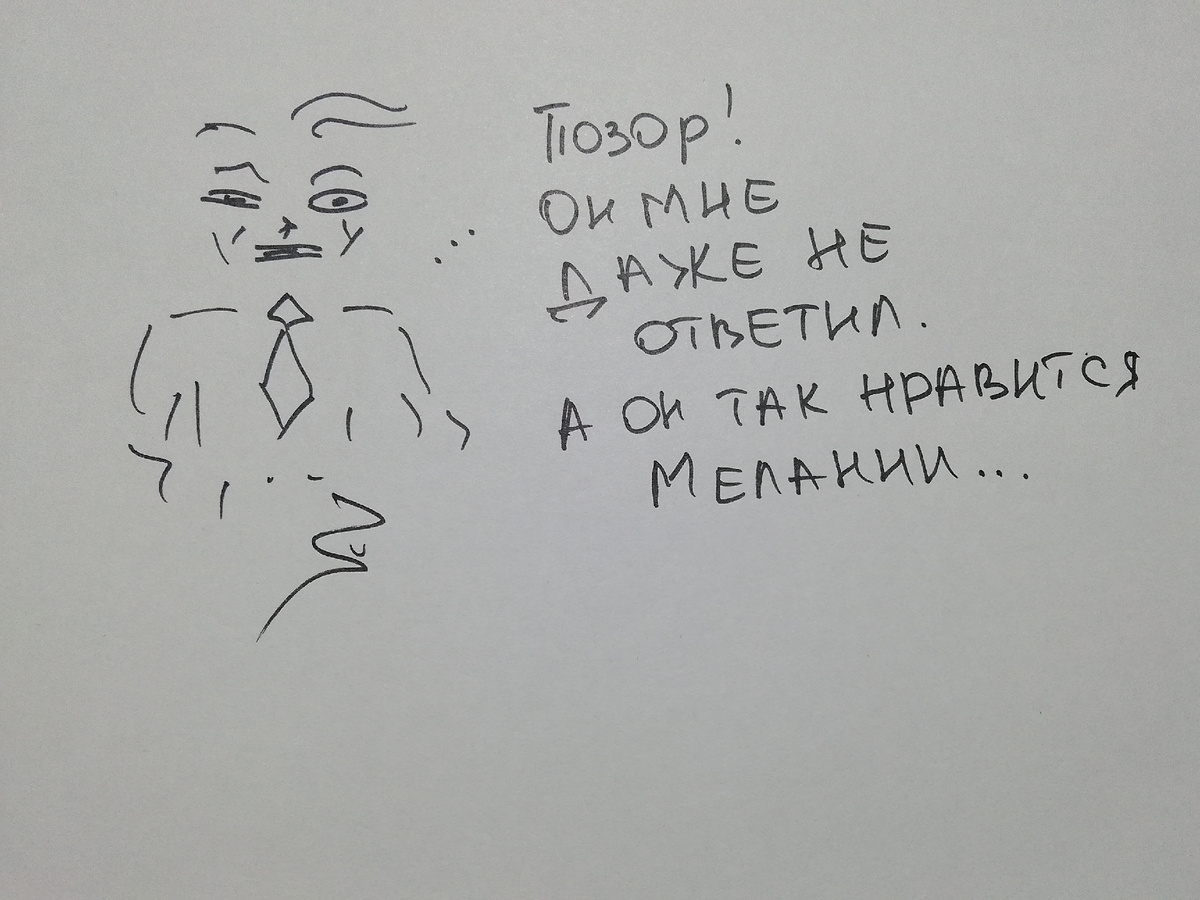 Позор!
ОН МНЕ
ДАЖЕ НЕ
ОТВЕТИЛ.
А ОН ТАК НРАВИТСЯ
МЕЛАНИИ...